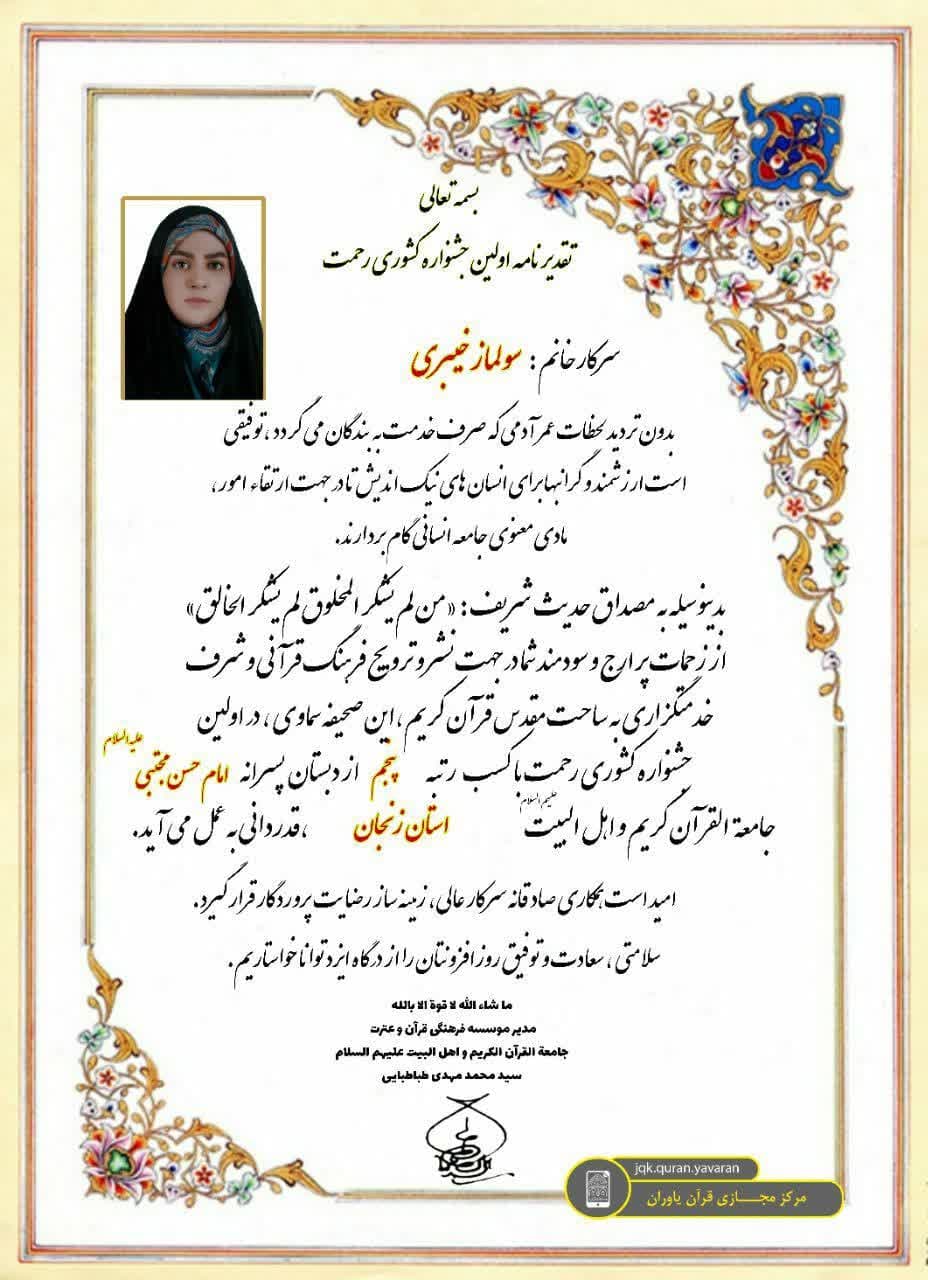 بسمه تعالی
تقدیر نامه اولین جشنواره کشوری رحمت
سرکار خانم : سولماز خیبری
بدون تردید لحظات عمر آدمی که صرف خدمت به بندگان می گردد ، توفیقی
است ارزشمند و گرانبها برای انسان های نیک اندیش تا در جهت ارتقاء امور ،
مادی معنوی جامعه انسانی گام بردارند.
بدینوسیله به مصداق حدیث شریف : «من لم یشکر المخلوق لم یشکر الخالق»
از زحمات پر ارج و سودمند شما در جهت نشر و ترویج فرهنگ قرآنی و شرف
خدمتگزاری به ساحت مقدس قرآن کریم ، این صحیفه سماوی ، در اولین
جشنواره کشوری رحمت با کسب رتبه پنجم از دبستان پسرانه امام حسن مجتبی علیه السلام
جامعة القرآن کریم و اهل البیت علیهم السلام استان زنجان ، قدردانی به عمل می آید.
امید است همکاری صادقانه سرکار عالی، زمینه ساز رضایت پروردگار قرار گیرد.
سلامتی ، سعادت و توفیق روز افزونتان را از درگاه ایزد توانا خواستاریم.
ما شاء الله لا قوة الا بالله
مدیر موسسه فرهنگی قرآن و عترت
جامعة القرآن الکریم و اهل البیت علیهم السلام
سید محمد مهدی طباطبایی
jqk.quran.yavaran
مرکز مجــازی قرآن یاوران